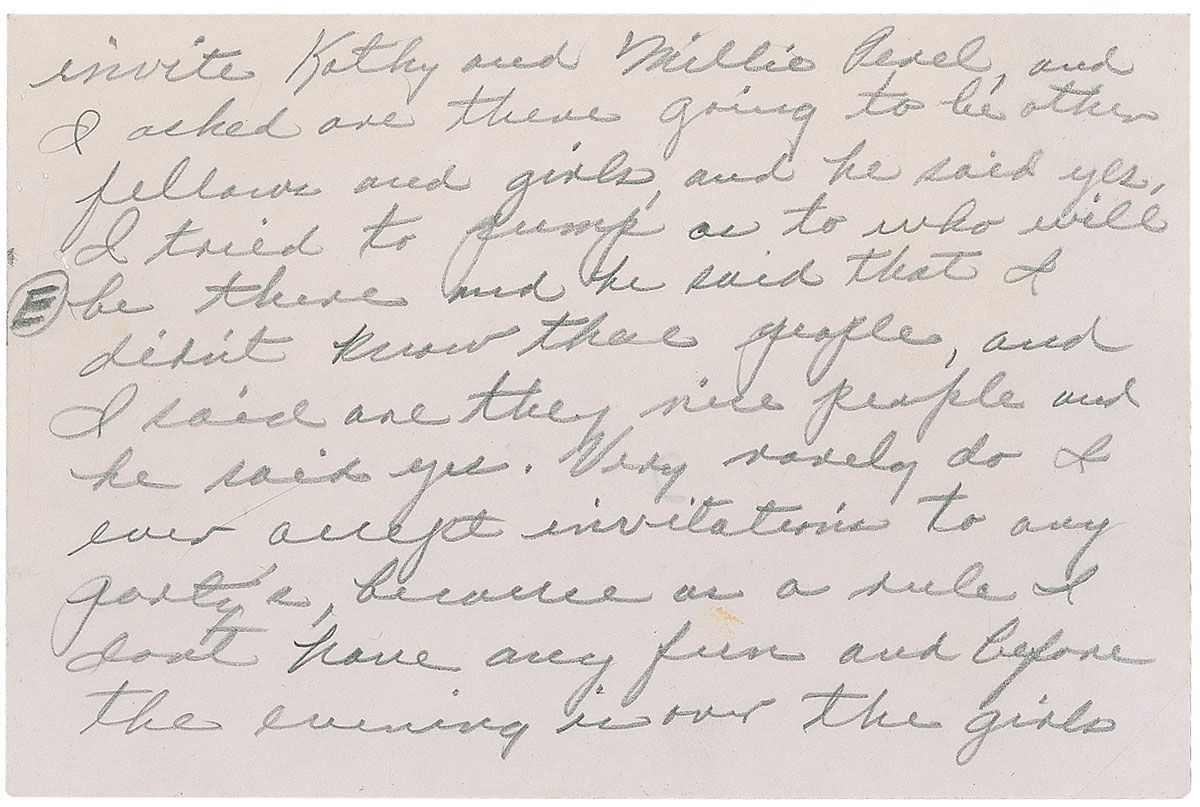 invite Kathy and Millie Perel, and
I asked are there going to be other
fellows and girls, and he said yes,
I tried to pump as to who will
E be there and he said that I
didn't know thae people, and
I said are they nice people and
he said yes. Very rarely do I
ever accept invitations to any
party's, because as a rule I
dont have any fun and before
the evening is over the girls